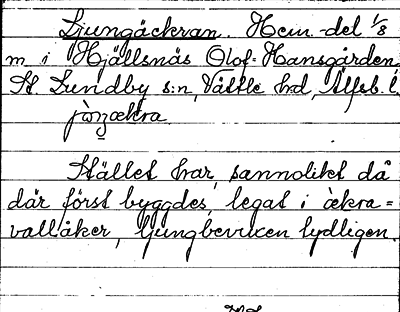 Ljungäckran. Hem.-del 1/8
m i Hjällsnäs Olof-Hansgården
St Lundby s:n, Vättle hd, Älfsb. l.
jòŋækra.
Stället har, sannolikt då
där först byggdes, legat i åkra=
vallåker, ljungbevuxen tydligen.